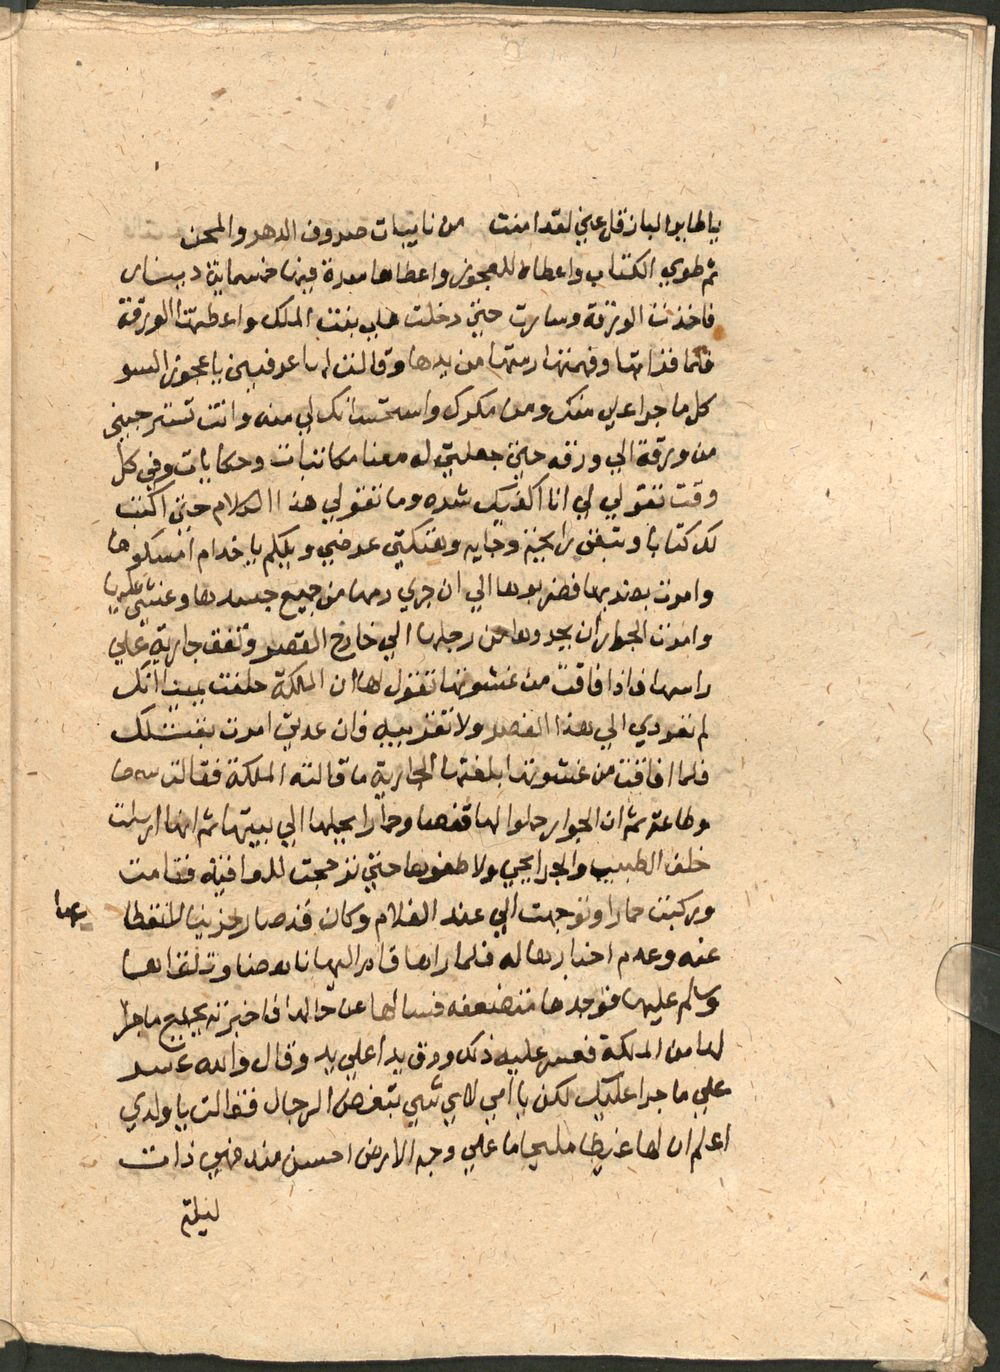 يا طاير البان قل عني لقد امنت من نايبات صروف الدهر والمحن
ثم طوي الكتاب واعطاه للعجوز واعطاها صرة فيها خمسماية دينار
فاخذت الورقة وسارت حتي دخلت علي بنت الملك واعطتها الورقة
فلما قراتها وفهمتها رمتها من يدها وقالت لها عرفيني يا عجوز السو
كل ما جرا علي منك ومن مكرك واستحسانك لي منه وانت تستر جيني
من ورقة الي ورقه حتي جعلتي له معنا مكاتبات وحكايات وفي كل
وقت تقولي لي انا اكفيك شره وما تقولي هذا الكلام حتي اكتب
لك كتابا وتبقي رايحة وجايه وهتكتي عرضي ويلكم يا خدام امسكوها
وامرت بضربها فضربوها الي ان جري دمها من جميع جسدها وغشي عليها
وامرت الجوار ان يجروها من رجلها الي خارج القصر وتقف جارية علي
راسها فاذا فاقت من غشوتها تقول لها ان الملكة حلفت يمين انك
لم تعودي الي هذا القصر ولا تقربيه فان عدتي امرت بقتلك
فلما افاقت من غشوتها ابلغتها الجارية ما قالته الملكة فقالت سمعا
وطاعة ثم ان الجوار حملوا لها قفصا وحمارا يحملها الي بيتها ثم انها ارسلت
خلف الطبيب والجرايحي ولاطفوها حتي توجهت للعافية فقامت
وركبت حمارا وتوجهت الي عند الغلام وكان قد صار حزينا لانقطا
عها
عنه وعدم اخبارها له فلما راها قام اليها ناهضا وتلقاها
وسلم عليها فوجدها متضعفه فسالها عن حالها فاخبرته بجميع ما جرا
لها من الملكة فعسر عليه ذلك ودق يدا علي يد وقال والله عسر
علي ما جرا عليك لكن يا امي لاي شي بتبغض الرجال فقالت يا ولدي
اعلم ان لها غيطا مليحا ما علي وجه الارض احسن منه فهي ذات
ليلة